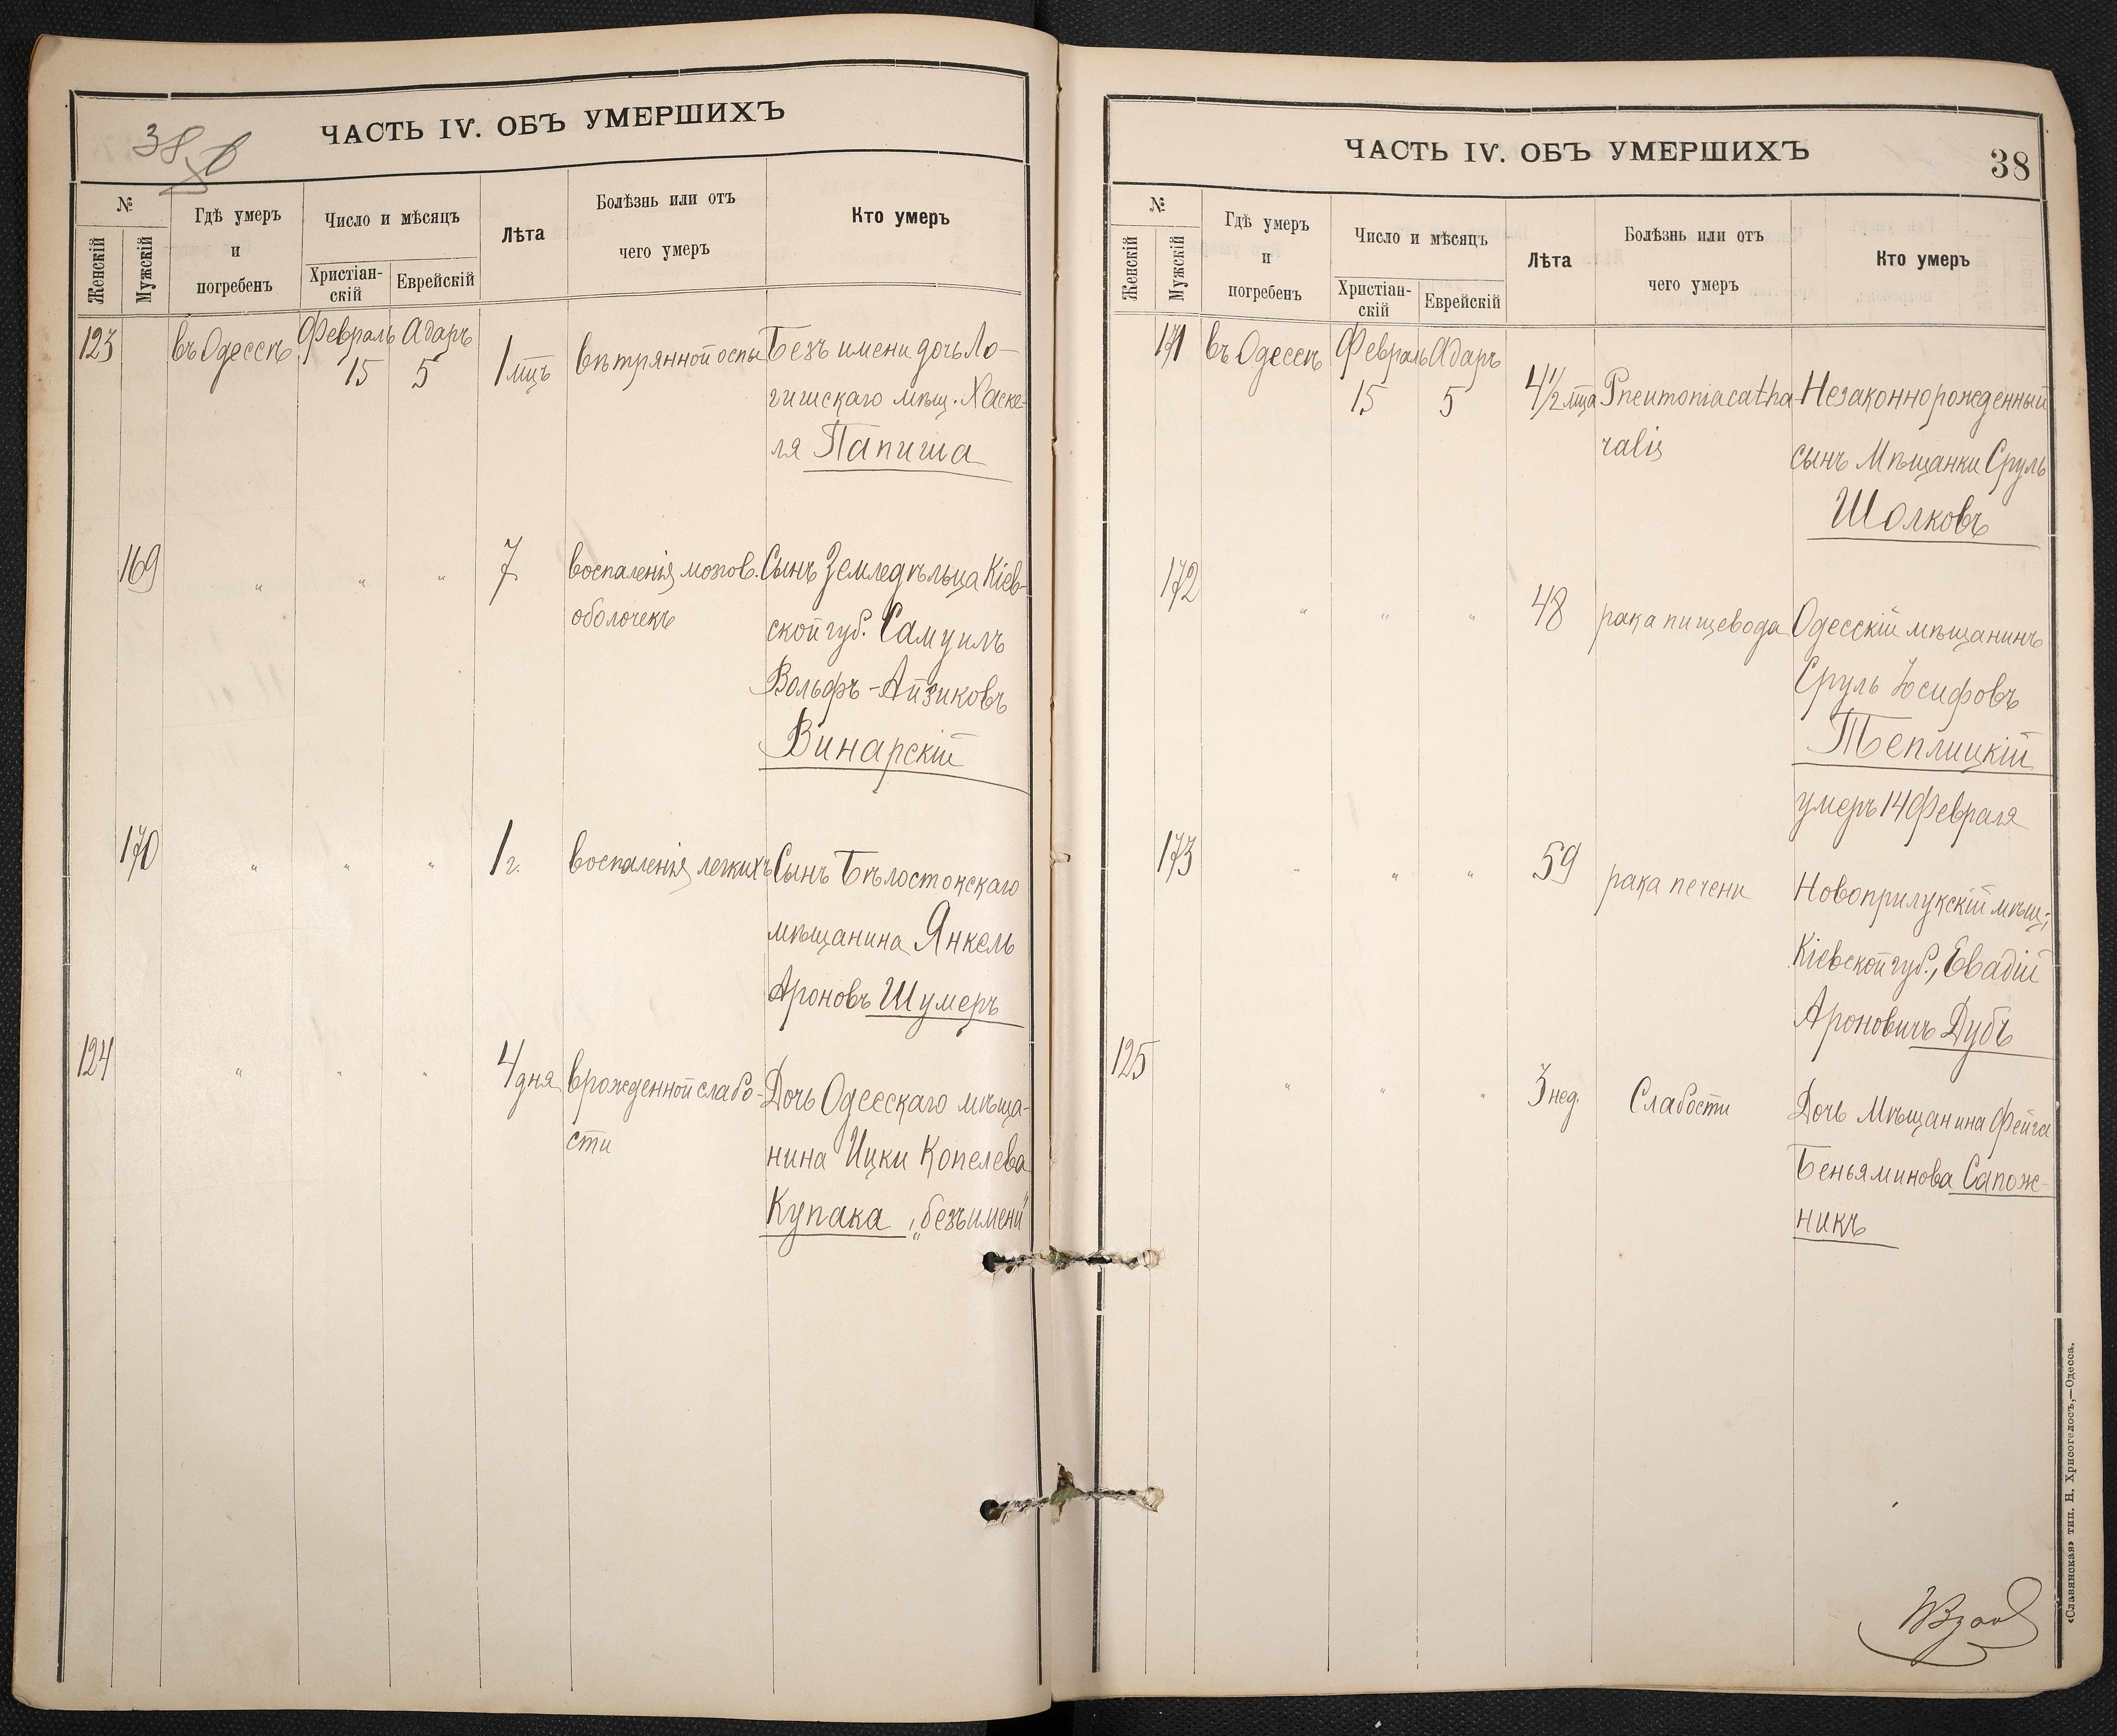 38
ЧАСТЬ IV. ОБЪ УМЕРШИХЪ
№
Женскій
Мужскій
Гдѣ умеръ
и
погребенъ
Число и мѣсяцъ
Христіан-
скій
Еврейскій
Лѣта
Болѣзнь или отъ
чего умеръ
Кто умеръ
123 въ Одессѣ Февраль 15 Адаръ 5 1 мцъ вѣтрянной оспы Безъ имени дочь Ло-
гишскаго мѣщ. Хаске-
ля Папиша
169 " " " 7 воспаленія мозгов. Сынъ Земледѣльца Кіев-
оболочекъ ской губ. Самуилъ
Вольфъ-Айзиковъ
Винарскій
170 " " " 1 г. воспаленія легкихъ Сынъ Бѣлостокскаго
мѣщанина Янкель
Ароновъ Шумеръ
124 " " " 4 дня врожденной слабо- Дочь Одесскаго мѣща-
сти нина Ицки Копелева
Купака, „безъ имени"
ЧАСТЬ IV. ОБЪ УМЕРШИХЪ
38
№
Женскій
Мужскій
Гдѣ умеръ
и
погребенъ
Число и мѣсяцъ
Христіан-
скій
Еврейскій
Лѣта
Болѣзнь или отъ
чего умеръ
Кто умеръ
171 въ Одессѣ Февраль 15 Адаръ 5 4 1/2 мца Pneumonia catha- Незаконнорожденный
ralis сынъ Мѣщанки Сруль
Шолковъ
172 " " " 48 рака пищевода Одесскій мѣщанинъ
Сруль Іосифовъ
Теплицкій
умеръ 14 Февраля
173 " " " 59 рака печени Новоприлукскій мѣщ.,
Кіевской губ., Евадій
Ароновичъ Дубъ
125 " " " 3 нед. Слабости Дочь Мѣщанина Фейга
Беньяминова Сапож-
никъ
«Славянская» тип. Н. Хрисогелосъ,—Одесса.